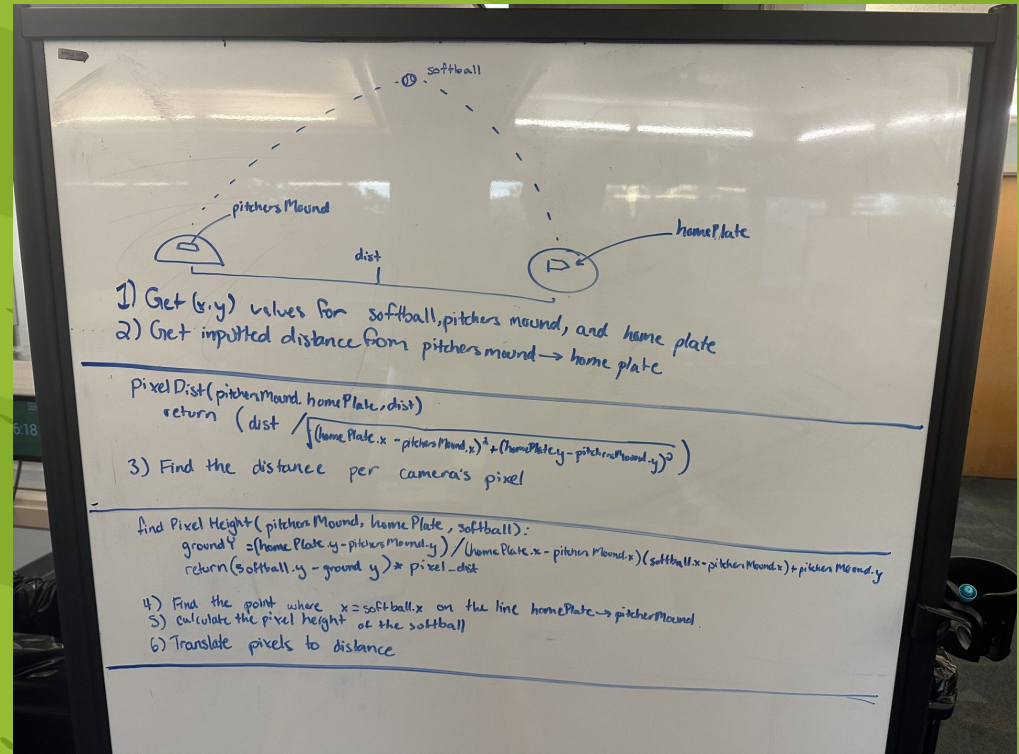 softball
pitchersMound
homePlate
dist
1) Get (x,y) values for softball, pitchers mound, and home plate
2) Get inputted distance from pitchers mound → home plate
pixelDist(pitchersMound, homePlate, dist)
return (dist / √(homePlate.x - pitchersMound.x)² + (homePlate.y - pitchersMound.y)²)
3) Find the distance per camera's pixel
find Pixel Height(pitchersMound, homePlate, softball):
groundY = (homePlate.y - pitchersMound.y) / (homePlate.x - pitchersMound.x)(softball.x - pitchersMound.x) + pitchersMound.y
return(softball.y - ground y) * pixel_dist
4) Find the point where x = softball.x on the line homePlate → pitcherMound
5) calculate the pixel height of the softball
6) Translate pixels to distance
6:18